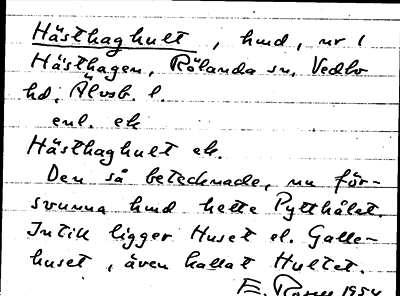 Hästhaghult, hmd, nr 1
Hästhagen, Rölanda sn, Vedbo
hd, Älvsb. l.
enl. ek
Hästhaghult ek.
Den så betecknade, nu för-
svunna hmd hette Pytthålet.
Intill ligger Huset el. Galle-
huset, även kallat Hultet.
E. 1954